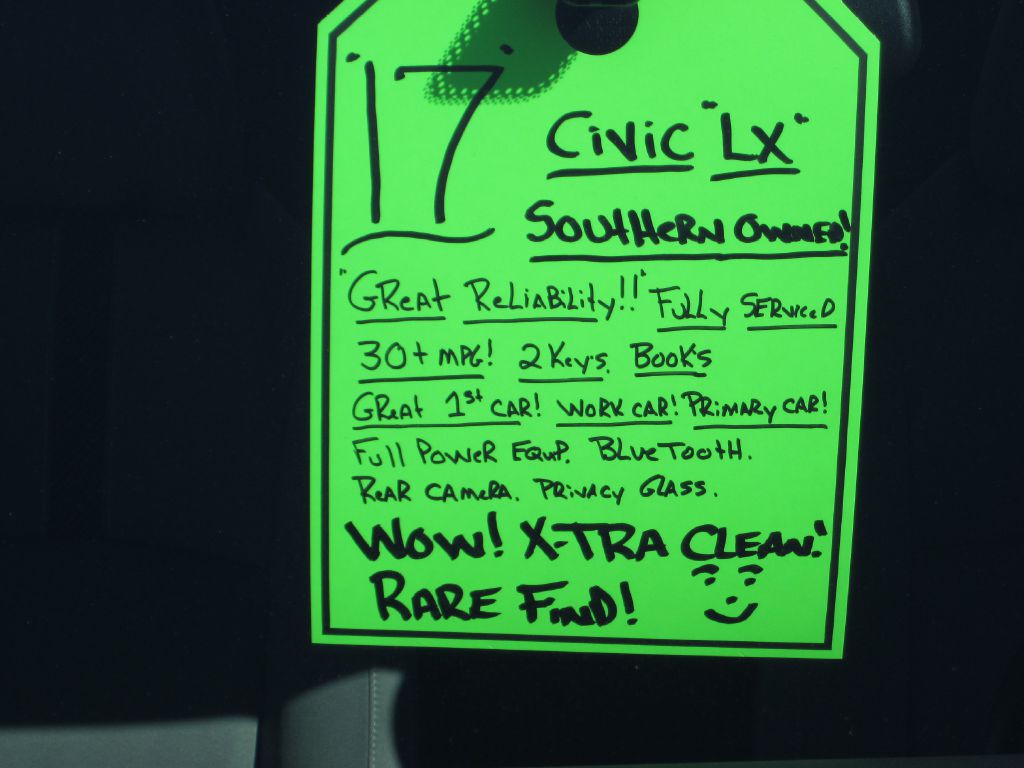 '17'
Civic "LX"
Southern Owned!
"Great Reliability!!" Fully Serviced
30+ MPG! 2 Key's. Book's
Great 1st Car! Work Car! Primary Car!
Full Power Equip. Bluetooth.
Rear Camera. Privacy Glass.
Wow! X-TRA Clean!
Rare Find!